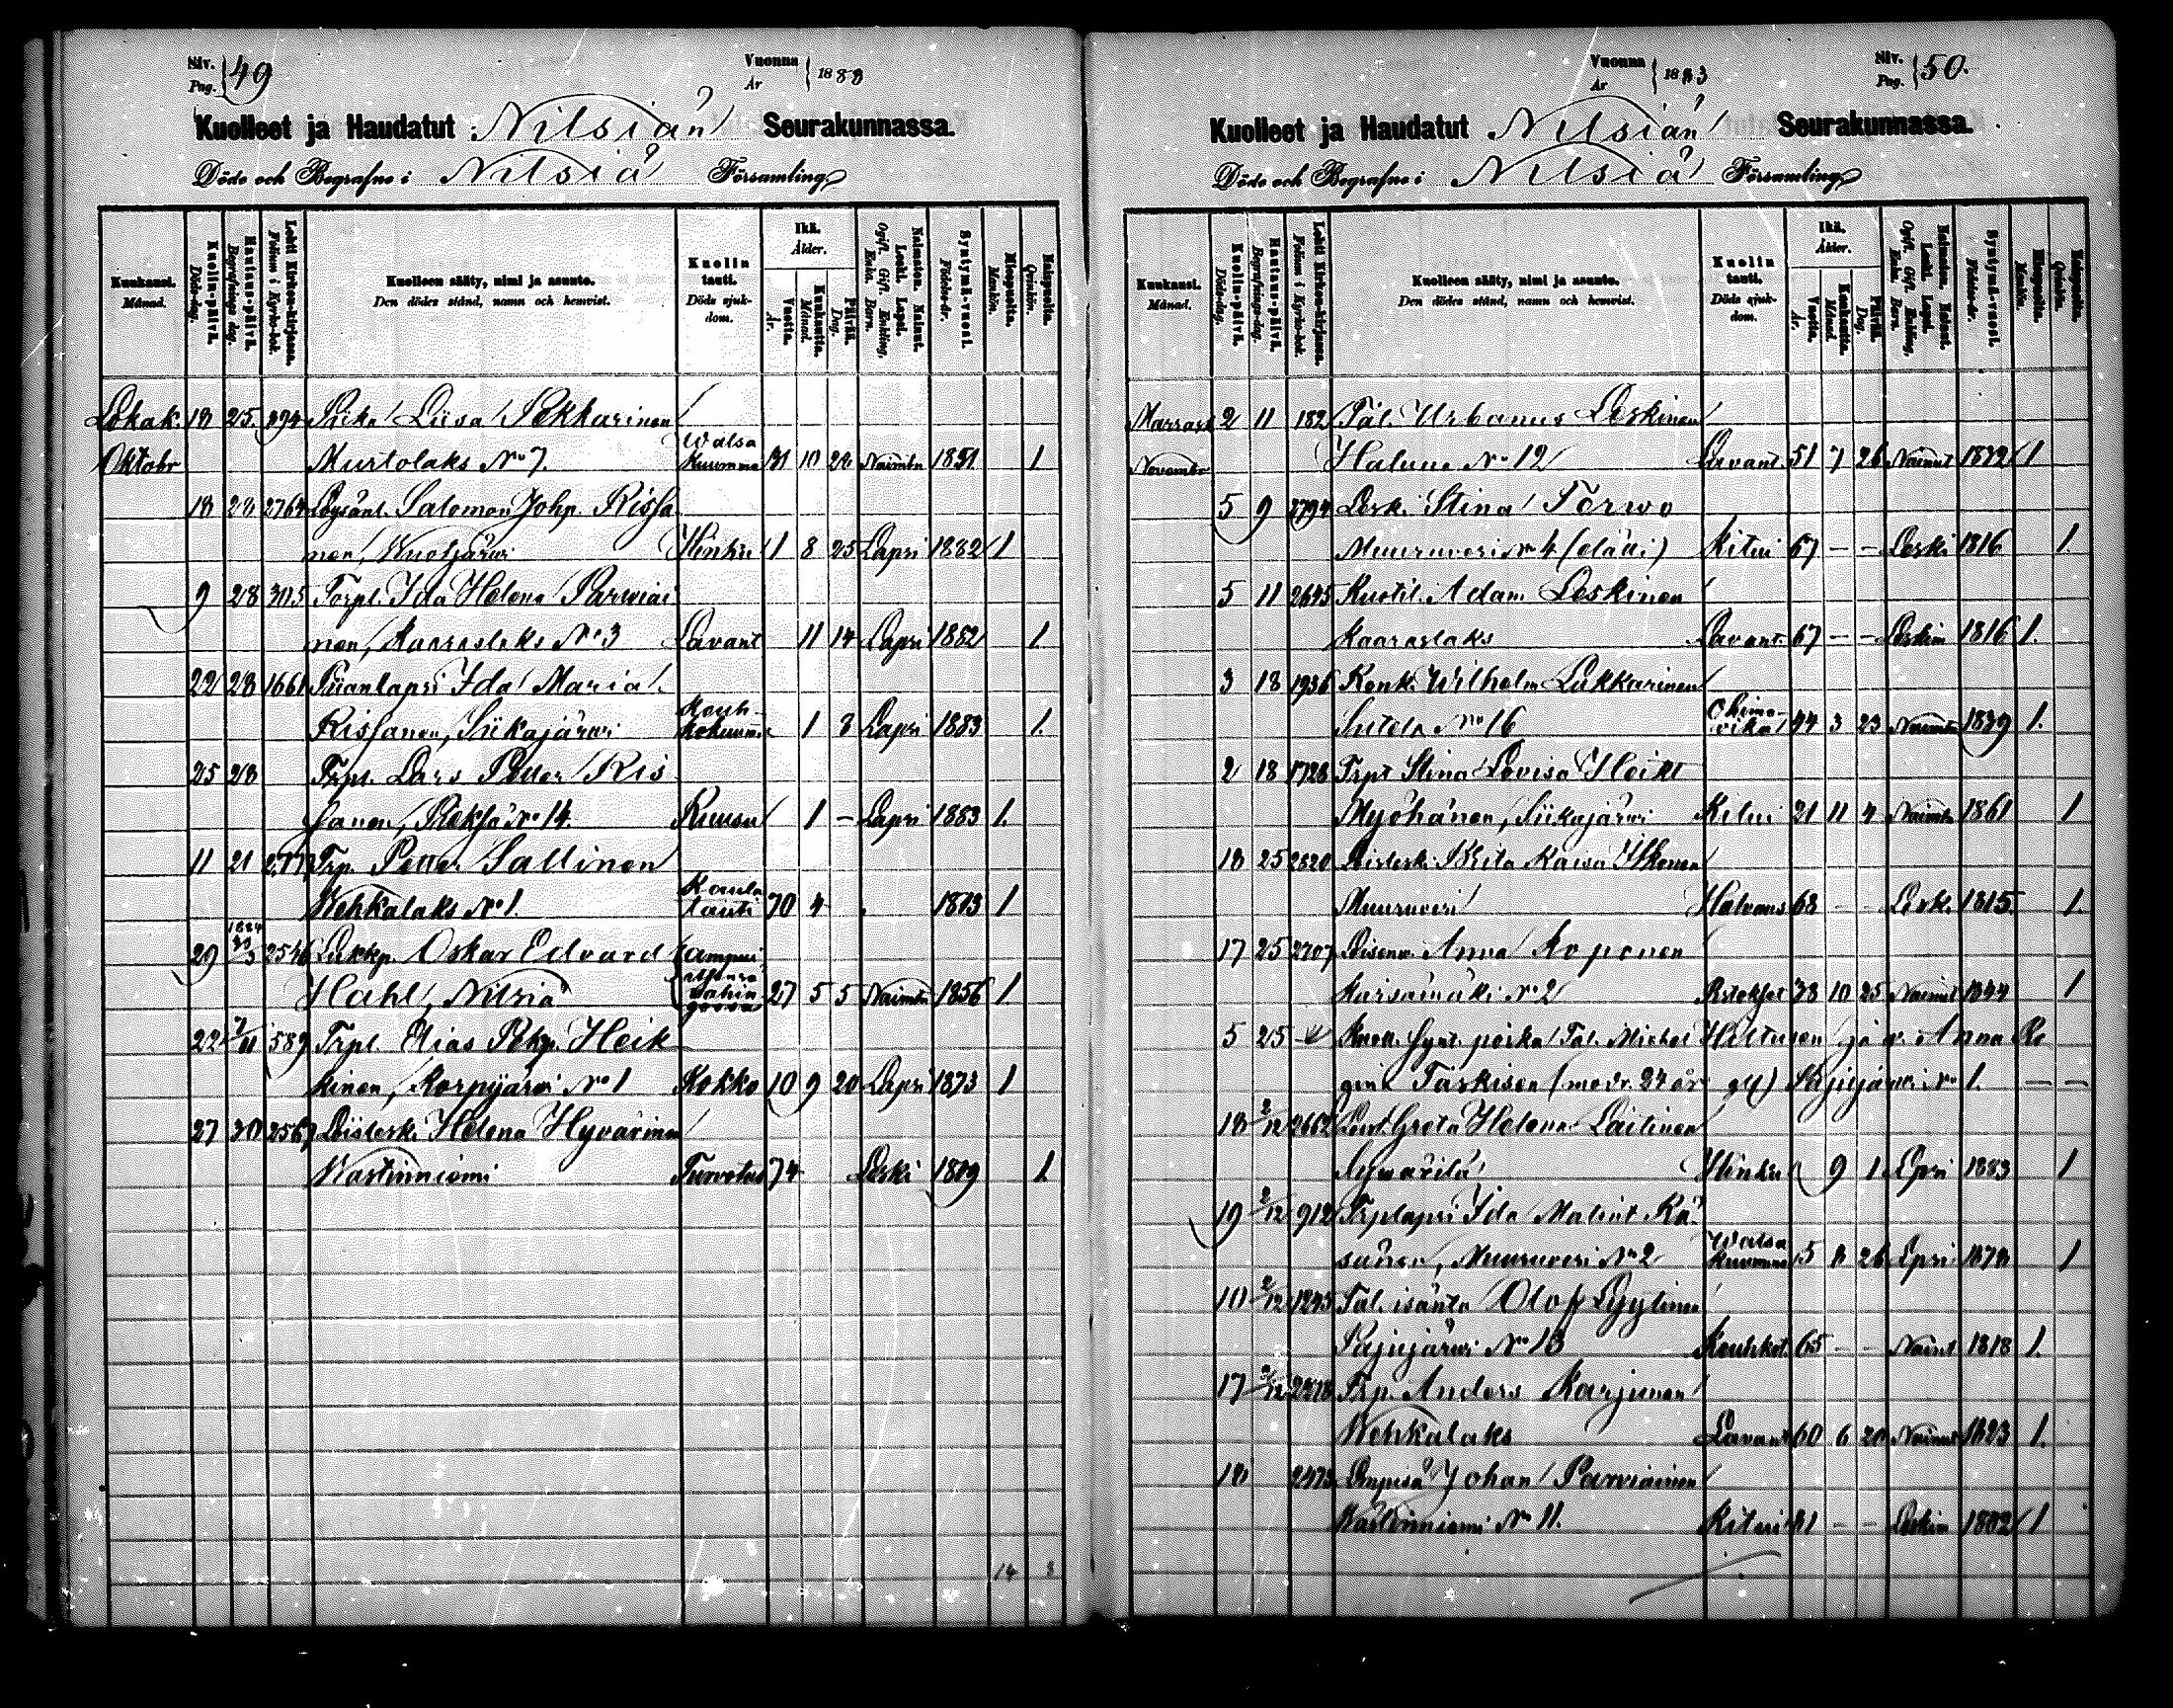 Siv. Pag. 49
Vuonna År 1883
Kuolleet ja Haudatut Nilsiän Seurakunnassa.
Döde och Begrafne i Nilsiä Församling
Kuukausi. Månad.
Kuolin-päivä. Döds-dag.
Hautaus-päivä. Begrafnings dag.
Lehti Kirkon-kirjassa. Folium i Kyrko-bok.
Kuolleen sääty, nimi ja asunto. Den dödes stånd, namn och hemvist.
Kuolin tauti. Döds sjuk-dom.
Ikä. Ålder.
Vuotta. År.
Kuukautta. Månad.
Päivää. Dag.
Naimaton. Nainut. Leski. Lapsi. Ogift. Gift. Enkling. Enka. Barn.
Syntymä-vuosi. Födelse-år.
Miespuolta. Mankön.
Vaimopuolta. Qvinkön.
Lokak. 18 25. 894 Liisa Pekkarinen
Oktobr Murtolaks No 7. Watsa kuumme 31 10 1851 1
18 28 2764 Salomon Johp. Rissa
nen, Wuotjärwi Hinku 1 8 25 Lapsi 1882 1
9 28 305 Torpl. Ida Helena Parwiai
nen, Kaaraslaks No 3 Lavant 11 14 Lapsi 1882 1.
22 28 1661 Piianlapsi Ida Maria
Rissanen, Siikajärwi 1 8 Lapsi 1883 1.
25 28 Trpl. Lars Petter Ris
sanen, No 14. Ruusu 1 - Lapsi 1883 1.
11 21 Trp. Petter Sallinen
Wehkalaks No 1. Kaula tauti 70 4 1813 1
29 1884 2546 Lukkp. Oskar Edvard
Hahl, Nilsiä 27 5 5 1856 1.
22 589 Trpl. Elias Pehp. Heik
kinen, Korpijärwi No 1 Kokko 10 9 20 Lapsi 1873 1
27 30 2567 Loislesk. Helena Hyvärinen
Wastinniemi Turvotus 74 Leski 1809 1.
14 8
Vuonna År 1883
Siv. Pag. 50.
Kuolleet ja Haudatut Nilsiän Seurakunnassa.
Döde och Begrafne i Nilsiä Församling
Kuukausi. Månad.
Kuolin-päivä. Döds-dag.
Hautaus-päivä. Begrafnings-dag.
Lehti Kirkon-kirjassa. Folium i Kyrko-bok.
Kuolleen sääty, nimi ja asunto. Den dödes stånd, namn och hemvist.
Kuolin tauti. Döds sjuk-dom.
Ikä. Ålder.
Vuotta. År.
Kuukautta. Månad.
Päivää. Dag.
Naimaton. Nainut. Leski. Lapsi. Ogift. Gift. Enkling. Enka. Barn.
Syntymä-vuosi. Födelse-år.
Miespuolta. Mankön.
Vaimopuolta. Qvinkön.
Marrask 2 11 182 Tal. Urbanus Leskinen
Novembr Haluna No 12 Lavant. 51 7 26 Nainut 1832 1
5 9 Lesk. Stina Torwo
Muuruvesi No 4 Kitui 67 - - Leski 1816 1.
5 11 2645 Adam Leskinen
Kaaraslaks Lavant. 67 - - Leskim 1816 1.
3 18 1936 Renk. Wilhelm Lukkarinen
Sutela No 16 44 3 23 1839 1.
2 18 1728 Trpt Stina Lovisa Heikt
Myöhänen, Siikajärwi Kitui 21 11 4 1861 1
18 25 2820 Loislesk. Kaisa
Muuruvesi Halvaus 68 - - Lesk. 1815 1.
17 25 2707 Anna Koponen
No 2 38 10 25 Nainut 1844 1
5 25 Kuoll. synt. poika Tal. Michel Hiltunen ja v. Anna Re
gina Taskisen (modr. 24 år gl) No 1. - -
18 2/12 2662 Greta Helena Laitinen
Hinku 9 1 Lpsi 1883 1
19 2/12 912 Trplapsi Ida Rä
sänen, Muuruvesi No 2 Watsa kuumme 5 8 26 Lpsi 1878 1
10 2/12 Tal. isäntä Olof Lyytinen
No 13 Keuhkot. 65 - - Nainut 1818 1.
17 Trp. Anders Karjunen
Wehkalaks Lavant 60 6 20 Nainut 1823 1.
18 2473 Johan Parviainen
Wastinniemi No 11. Kitui 81 - - Leskim 1802 1